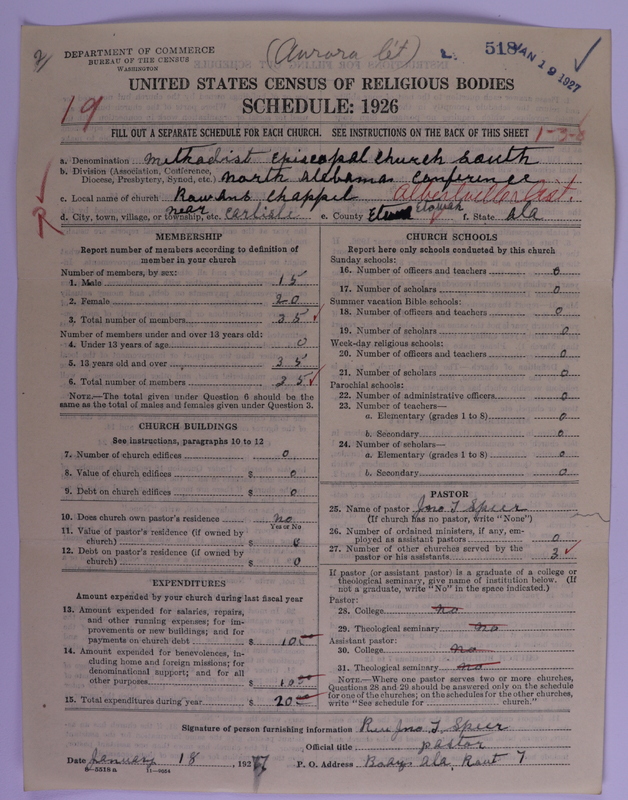 2/
DEPARTMENT OF COMMERCE
BUREAU OF THE CENSUS
WASHINGTON
(Aurora
2. 518 JAN 19 1927
UNITED STATES CENSUS OF RELIGIOUS BODIES
19
SCHEDULE: 1926
FILL OUT A SEPARATE SCHEDULE FOR EACH CHURCH. SEE INSTRUCTIONS ON THE BACK OF THIS SHEET 1-3-
a. Denomination Methodist Episcopal Church South
b. Division (Association, Conference, Diocese, Presbytery, Synod, etc.) North Alabama Conference
c. Local name of church Rowans Chappel Albertville Dist.
d. City, town, village, or township, etc. near Carlisle e. County Etowah f. State Ala
R
MEMBERSHIP
Report number of members according to definition of
member in your church
Number of members, by sex:
1. Male 15
2. Female 20
3. Total number of members 35
Number of members under and over 13 years old:
4. Under 13 years of age 0
5. 13 years old and over 35
6. Total number of members 35
NOTE.—The total given under Question 6 should be the
same as the total of males and females given under Question 3.
CHURCH BUILDINGS
See instructions, paragraphs 10 to 12
7. Number of church edifices 0
8. Value of church edifices $ 0
9. Debt on church edifices $ 0
10. Does church own pastor's residence no
Yes or No
11. Value of pastor's residence (if owned by
church) $ 0
12. Debt on pastor's residence (if owned by
church) $ 0
EXPENDITURES
Amount expended by your church during last fiscal year
13. Amount expended for salaries, repairs,
and other running expenses; for im-
provements or new buildings; and for
payments on church debt $ 10 00
14. Amount expended for benevolences, in-
cluding home and foreign missions; for
denominational support; and for all
other purposes $ 10 00
15. Total expenditures during year $ 20 00
CHURCH SCHOOLS
Report here only schools conducted by this church
Sunday schools:
16. Number of officers and teachers 0
17. Number of scholars 0
Summer vacation Bible schools:
18. Number of officers and teachers 0
19. Number of scholars 0
Week-day religious schools:
20. Number of officers and teachers 0
21. Number of scholars 0
Parochial schools:
22. Number of administrative officers 0
23. Number of teachers—
a. Elementary (grades 1 to 8) 0
b. Secondary 0
24. Number of scholars—
a. Elementary (grades 1 to 8) 0
b. Secondary 0
PASTOR
25. Name of pastor Jno T Speer
(If church has no pastor, write "None")
26. Number of ordained ministers, if any, em-
ployed as assistant pastors 0
27. Number of other churches served by the
pastor or his assistants 3
If pastor (or assistant pastor) is a graduate of a college or
theological seminary, give name of institution below. (If
not a graduate, write "No" in the space indicated.)
Pastor:
28. College no
29. Theological seminary no
Assistant pastor:
30. College no
31. Theological seminary no
NOTE.—Where one pastor serves two or more churches,
Questions 28 and 29 should be answered only on the schedule
for one of the churches; on the schedules for the other churches,
write "See schedule for church."
Signature of person furnishing information Rev Jno T Speer
Official title pastor
Date January 18, 1927 P. O. Address Boaz Ala, Rout 7
8—5518a 11—9064